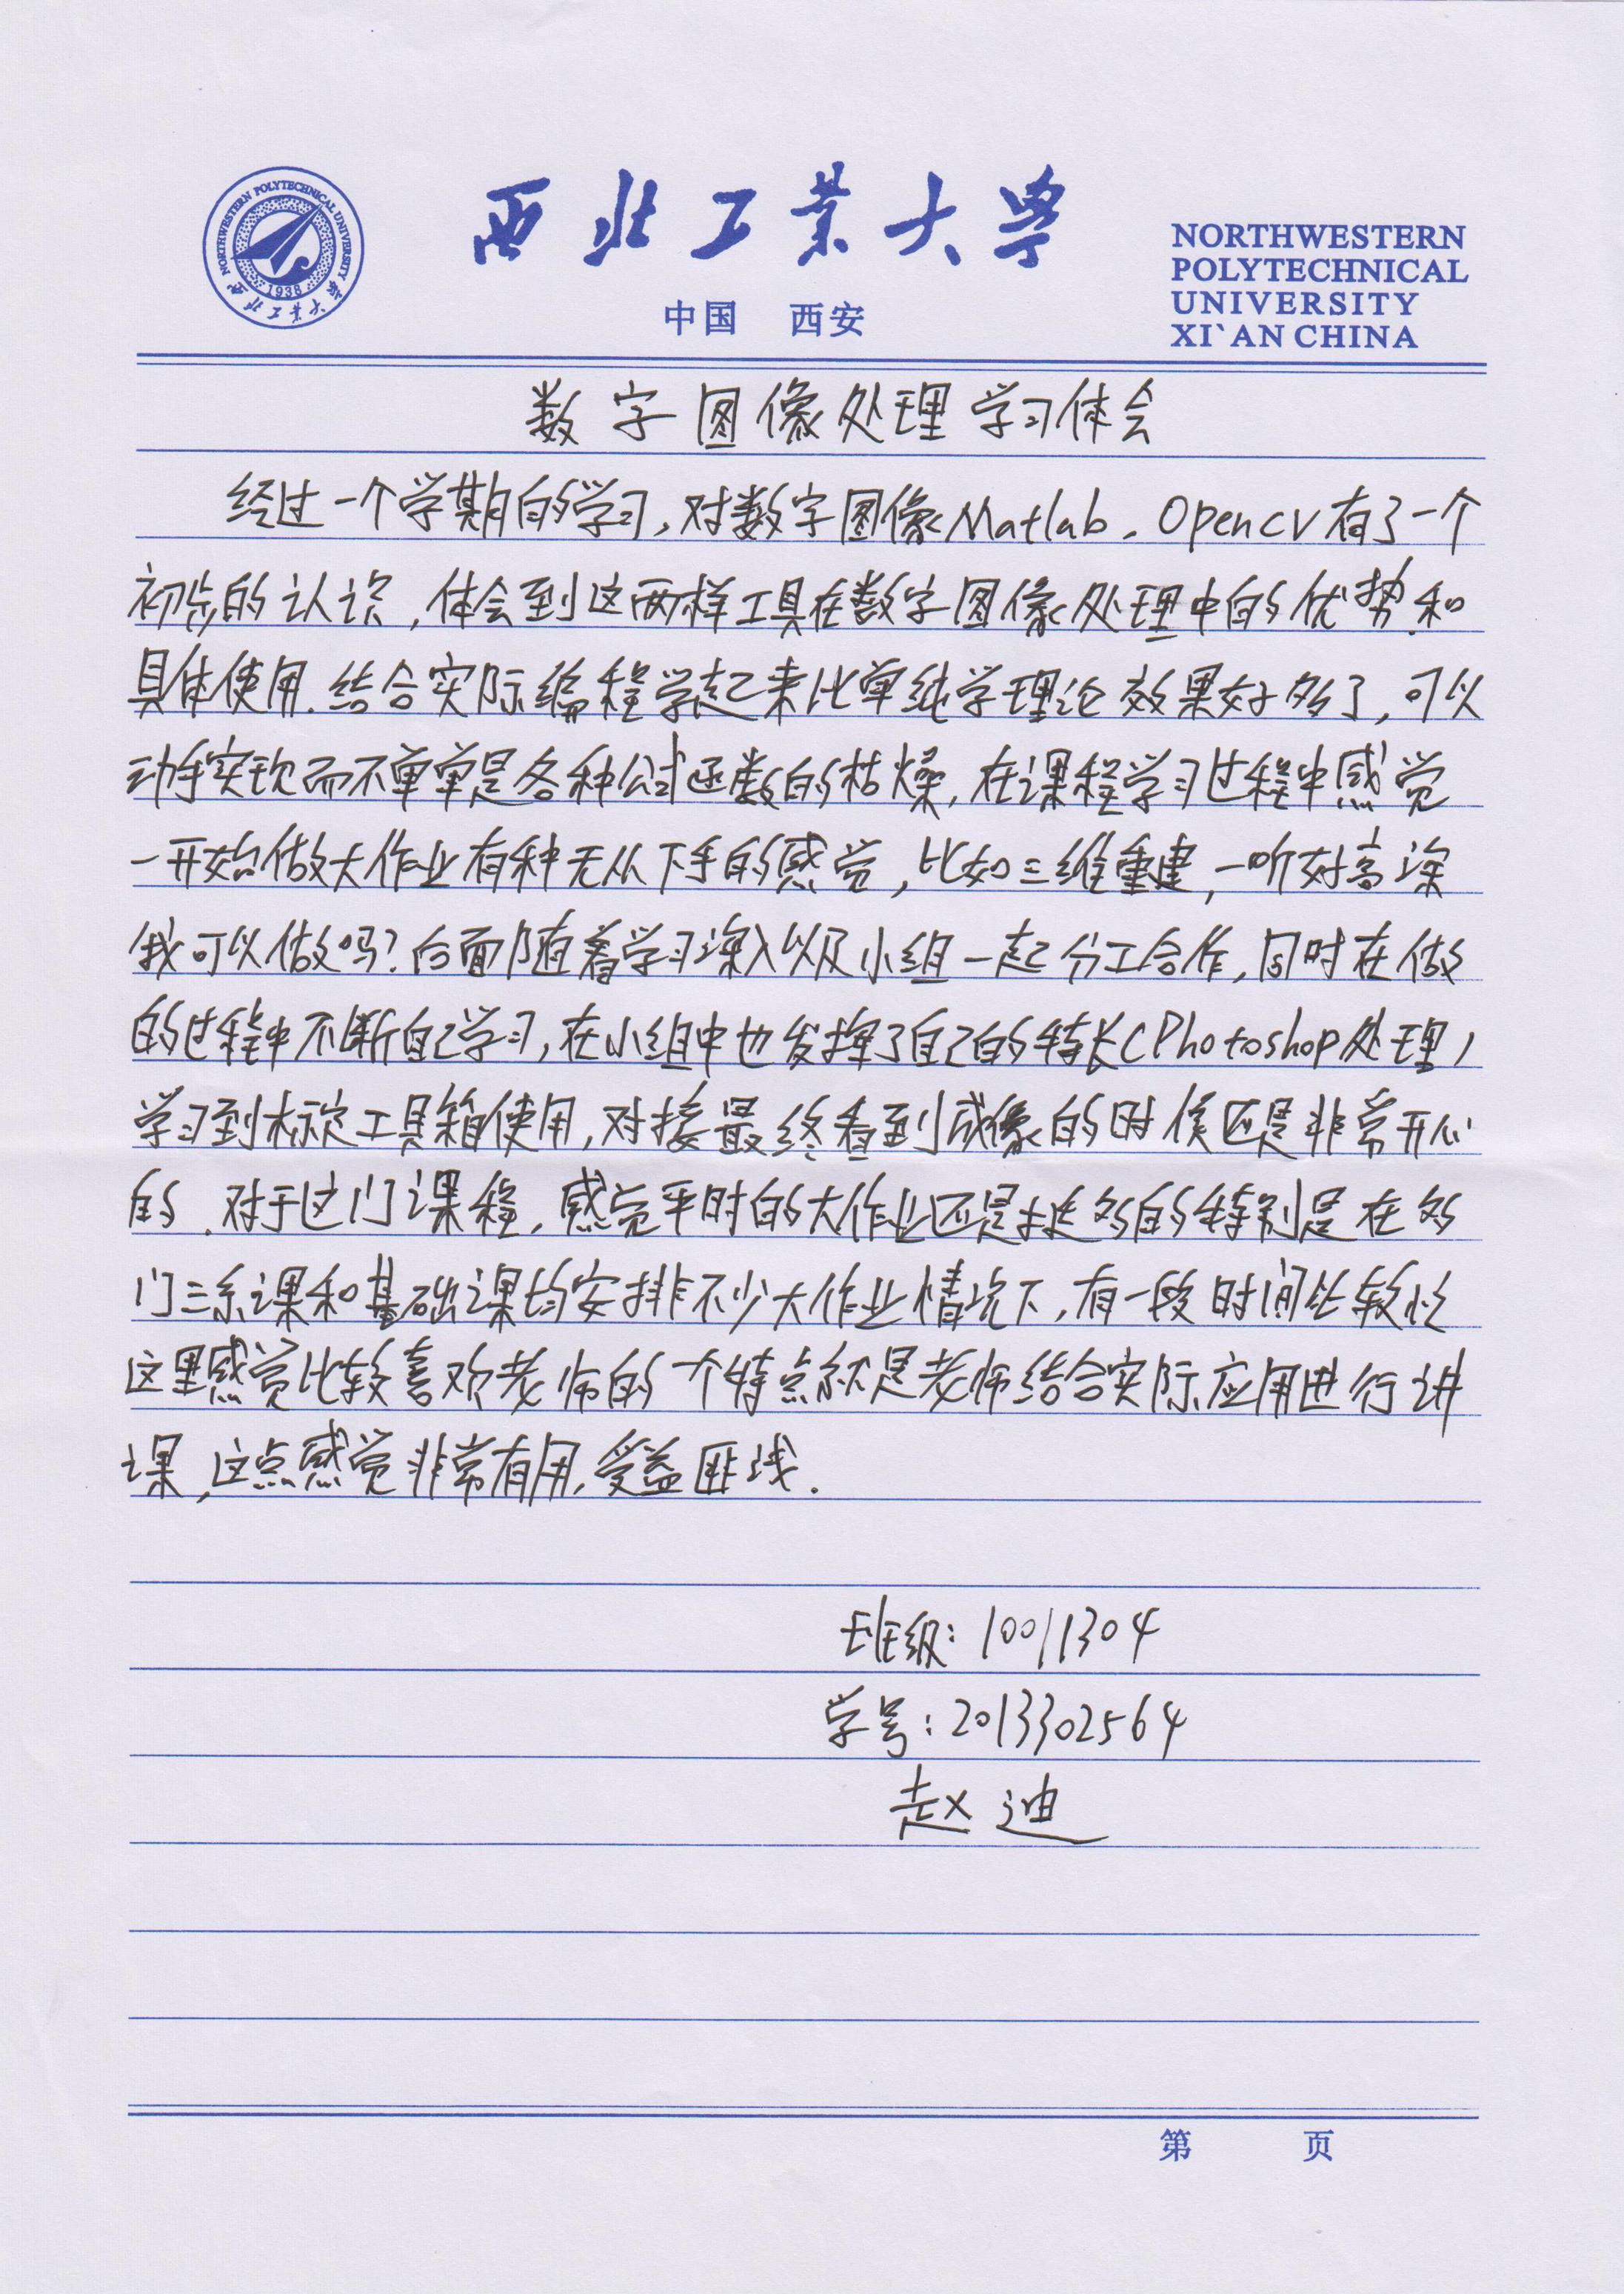 NORTHWESTERN POLYTECHNICAL UNIVERSITY
1938
西北工业大学
西北工业大学
中国 西安
NORTHWESTERN
POLYTECHNICAL
UNIVERSITY
XI`AN CHINA
数字图像处理学习体会
经过一个学期的学习,对数字图像Matlab、Opencv有了一个
初步的认识,体会到这两样工具在数字图像处理中的优势和
具体使用.结合实际编程学起来比单纯学理论效果好多了,可以
动手实现而不单单是各种公式函数的枯燥,在课程学习过程中感觉
一开始做大作业有种无从下手的感觉,比如三维重建,一听好高深
我可以做吗?后面随着学习深入以及小组一起分工合作,同时在做
的过程中不断自己学习,在小组中也发挥了自己的特长(Photoshop处理)
学习到标定工具箱使用,对接最终看到成像的时候还是非常开心
的.对于这门课程,感觉平时的大作业还是挺多的特别是在多
门三系课和基础课均安排不少大作业情况下,有一段时间比较忙
这里感觉比较喜欢老师的一个特点就是老师结合实际应用进行讲
课,这点感觉非常有用,受益匪浅.
班级:10011304
学号:2013302564
赵迪
第 页